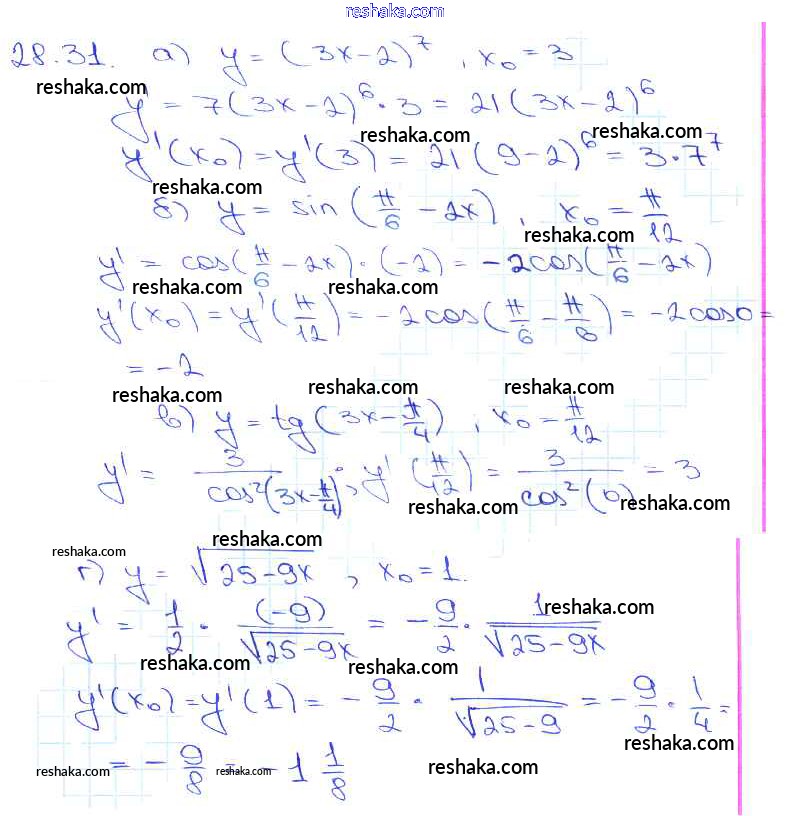 reshaka.com
28.31. а) y = (3x-2)^7, x₀ = 3
reshaka.com
y' = 7(3x-2)^6 · 3 = 21(3x-2)^6
reshaka.com reshaka.com
y'(x₀) = y'(3) = 21(9-2)^6 = 3·7^7
reshaka.com
б) y = sin(π/6 - 2x), x₀ = π/12
reshaka.com
y' = cos(π/6 - 2x)·(-2) = -2cos(π/6 - 2x)
reshaka.com reshaka.com
y'(x₀) = y'(π/12) = -2cos(π/6 - π/6) = -2cos0 =
= -2
reshaka.com reshaka.com reshaka.com
в) y = tg(3x - π/4), x₀ = π/12
y' = 3/cos²(3x - π/4); y'(π/12) = 3/cos²(0) = 3
reshaka.com reshaka.com
reshaka.com reshaka.com
г) y = √(25-9x), x₀ = 1.
reshaka.com
y' = 1/2 · (-9)/√(25-9x) = -9/2 · 1/√(25-9x)
reshaka.com reshaka.com
y'(x₀) = y'(1) = -9/2 · 1/√(25-9) = -9/2 · 1/4 =
reshaka.com
= -9/8 = -1 1/8
reshaka.com reshaka.com reshaka.com